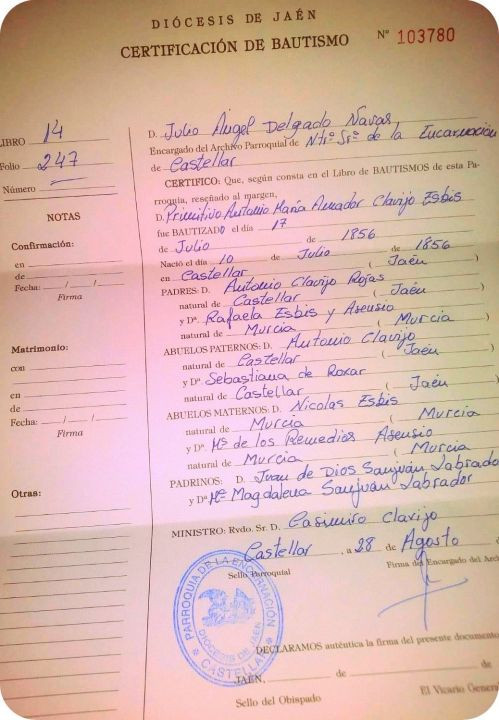 DIÓCESIS DE JAÉN
CERTIFICACIÓN DE BAUTISMO
Nº 103780
LIBRO 14
Folio 247
Número
NOTAS
Confirmación:
en
de
Fecha: / /
Firma
Matrimonio:
con
en
de
Fecha: / /
Firma
Otras:
D. Julio Ángel Delgado Navas
Encargado del Archivo Parroquial de Ntrª Srª de la Encarnación
de Castellar
CERTIFICO: Que, según consta en el Libro de BAUTISMOS de esta Pa-
rroquia, reseñado al margen,
D. Primitivo Antonio María Amador Clavijo Esbis
fue BAUTIZADO el día 17
de Julio de 1856
Nació el día 10 de Julio de 1856
en Castellar ( Jaén )
PADRES: D. Antonio Clavijo Rojas
natural de Castellar ( Jaén )
y Dª Rafaela Esbis y Asensio
natural de Murcia ( Murcia )
ABUELOS PATERNOS: D. Antonio Clavijo
natural de Castellar ( Jaén )
y Dª Sebastiana de Roxar
natural de Castellar ( Jaén )
ABUELOS MATERNOS: D. Nicolas Esbis
natural de Murcia ( Murcia )
y Dª Mª de los Remedios Asensio
natural de Murcia ( Murcia )
PADRINOS: D. Juan de Dios Sanjuán Labrador
y Dª Mª Magdalena Sanjuán Labrador
MINISTRO: Rvdo. Sr. D. Casimiro Clavijo
Castellar, a 28 de Agosto de
Sello Parroquial
Firma del Encargado del Arc
PARROQUIA DE LA ENCARNACIÓN
DIÓCESIS DE JAÉN
CASTELLAR
DECLARAMOS auténtica la firma del presente documento
JAÉN, de de
Sello del Obispado
El Vicario Gener